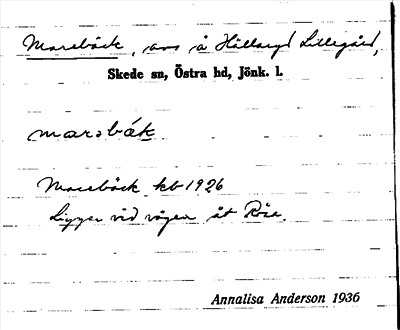 Marsbäck, avs å Hällaryd Lillegård,
Skede sn, Östra hd, Jönk. l.
marsbäk
Marsbäck kb 1926
Ligger vid vägen åt Röse.
Annalisa Anderson 1936